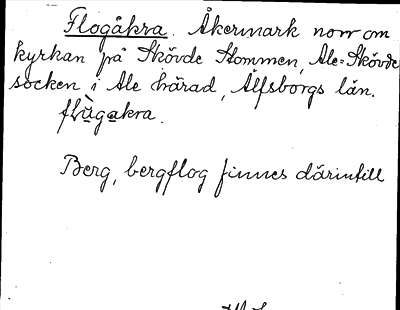 Flogåkra. Åkermark norr om
kyrkan på Skövde Stommen, Ale=Skövde
socken i Ale härad, Älfsborgs län.
flùgakra.
Berg, bergflog finnes därintill